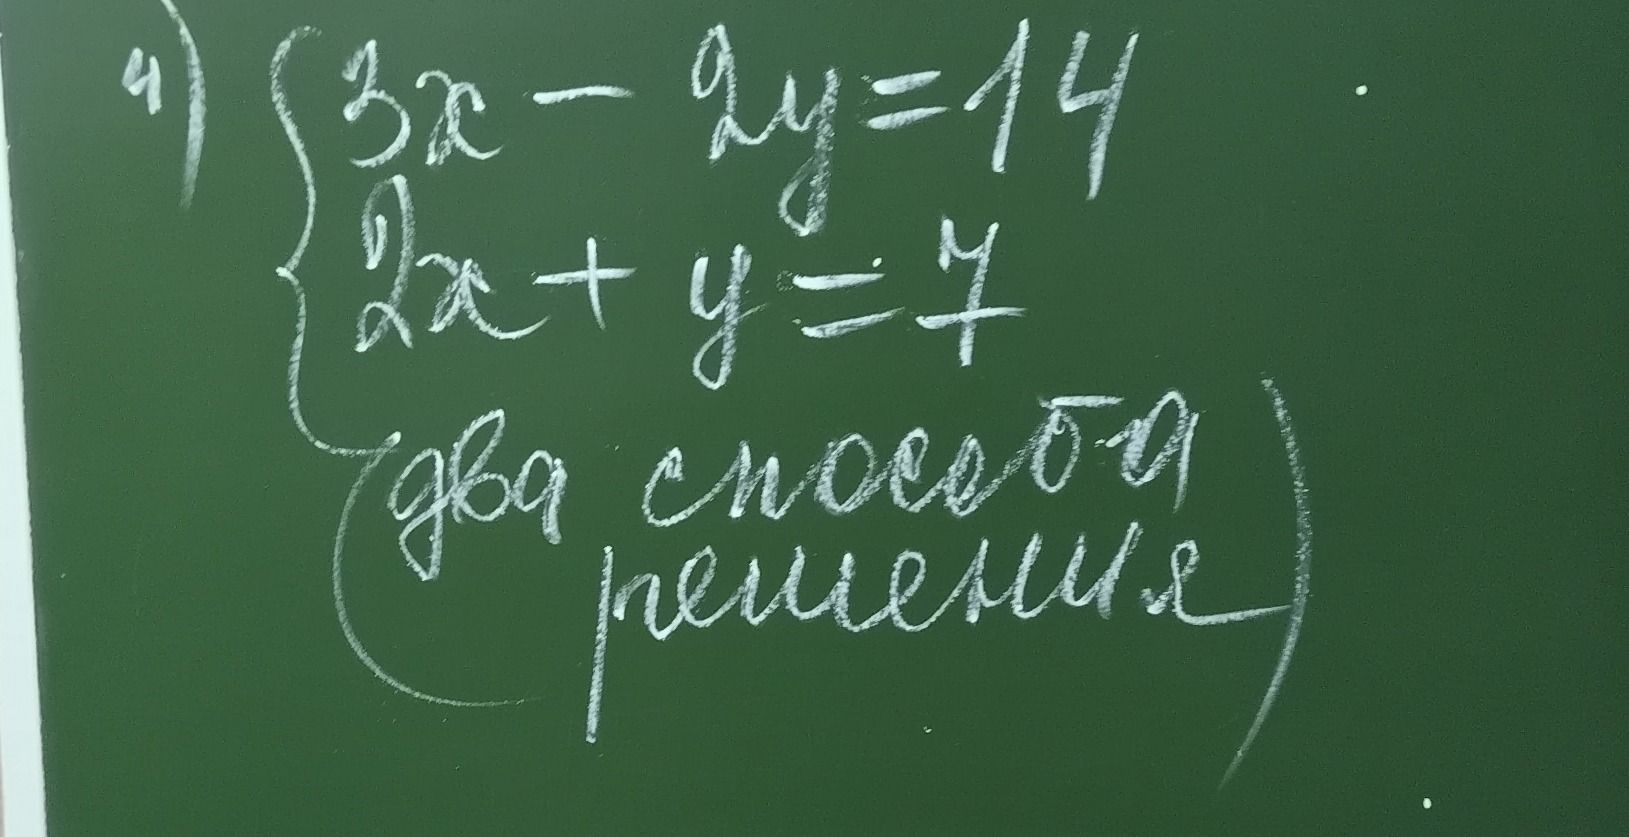 4) { 3x - 2y = 14
2x + y = 7
(два способа
решения)